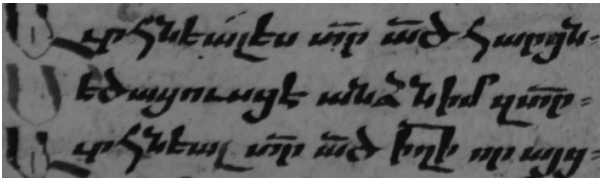 Աւրհնեալ ես տր ած հարցն
Մեծացուսցէ անձն իմ զտր
Աւրհնեալ տր ած իղի որ այց